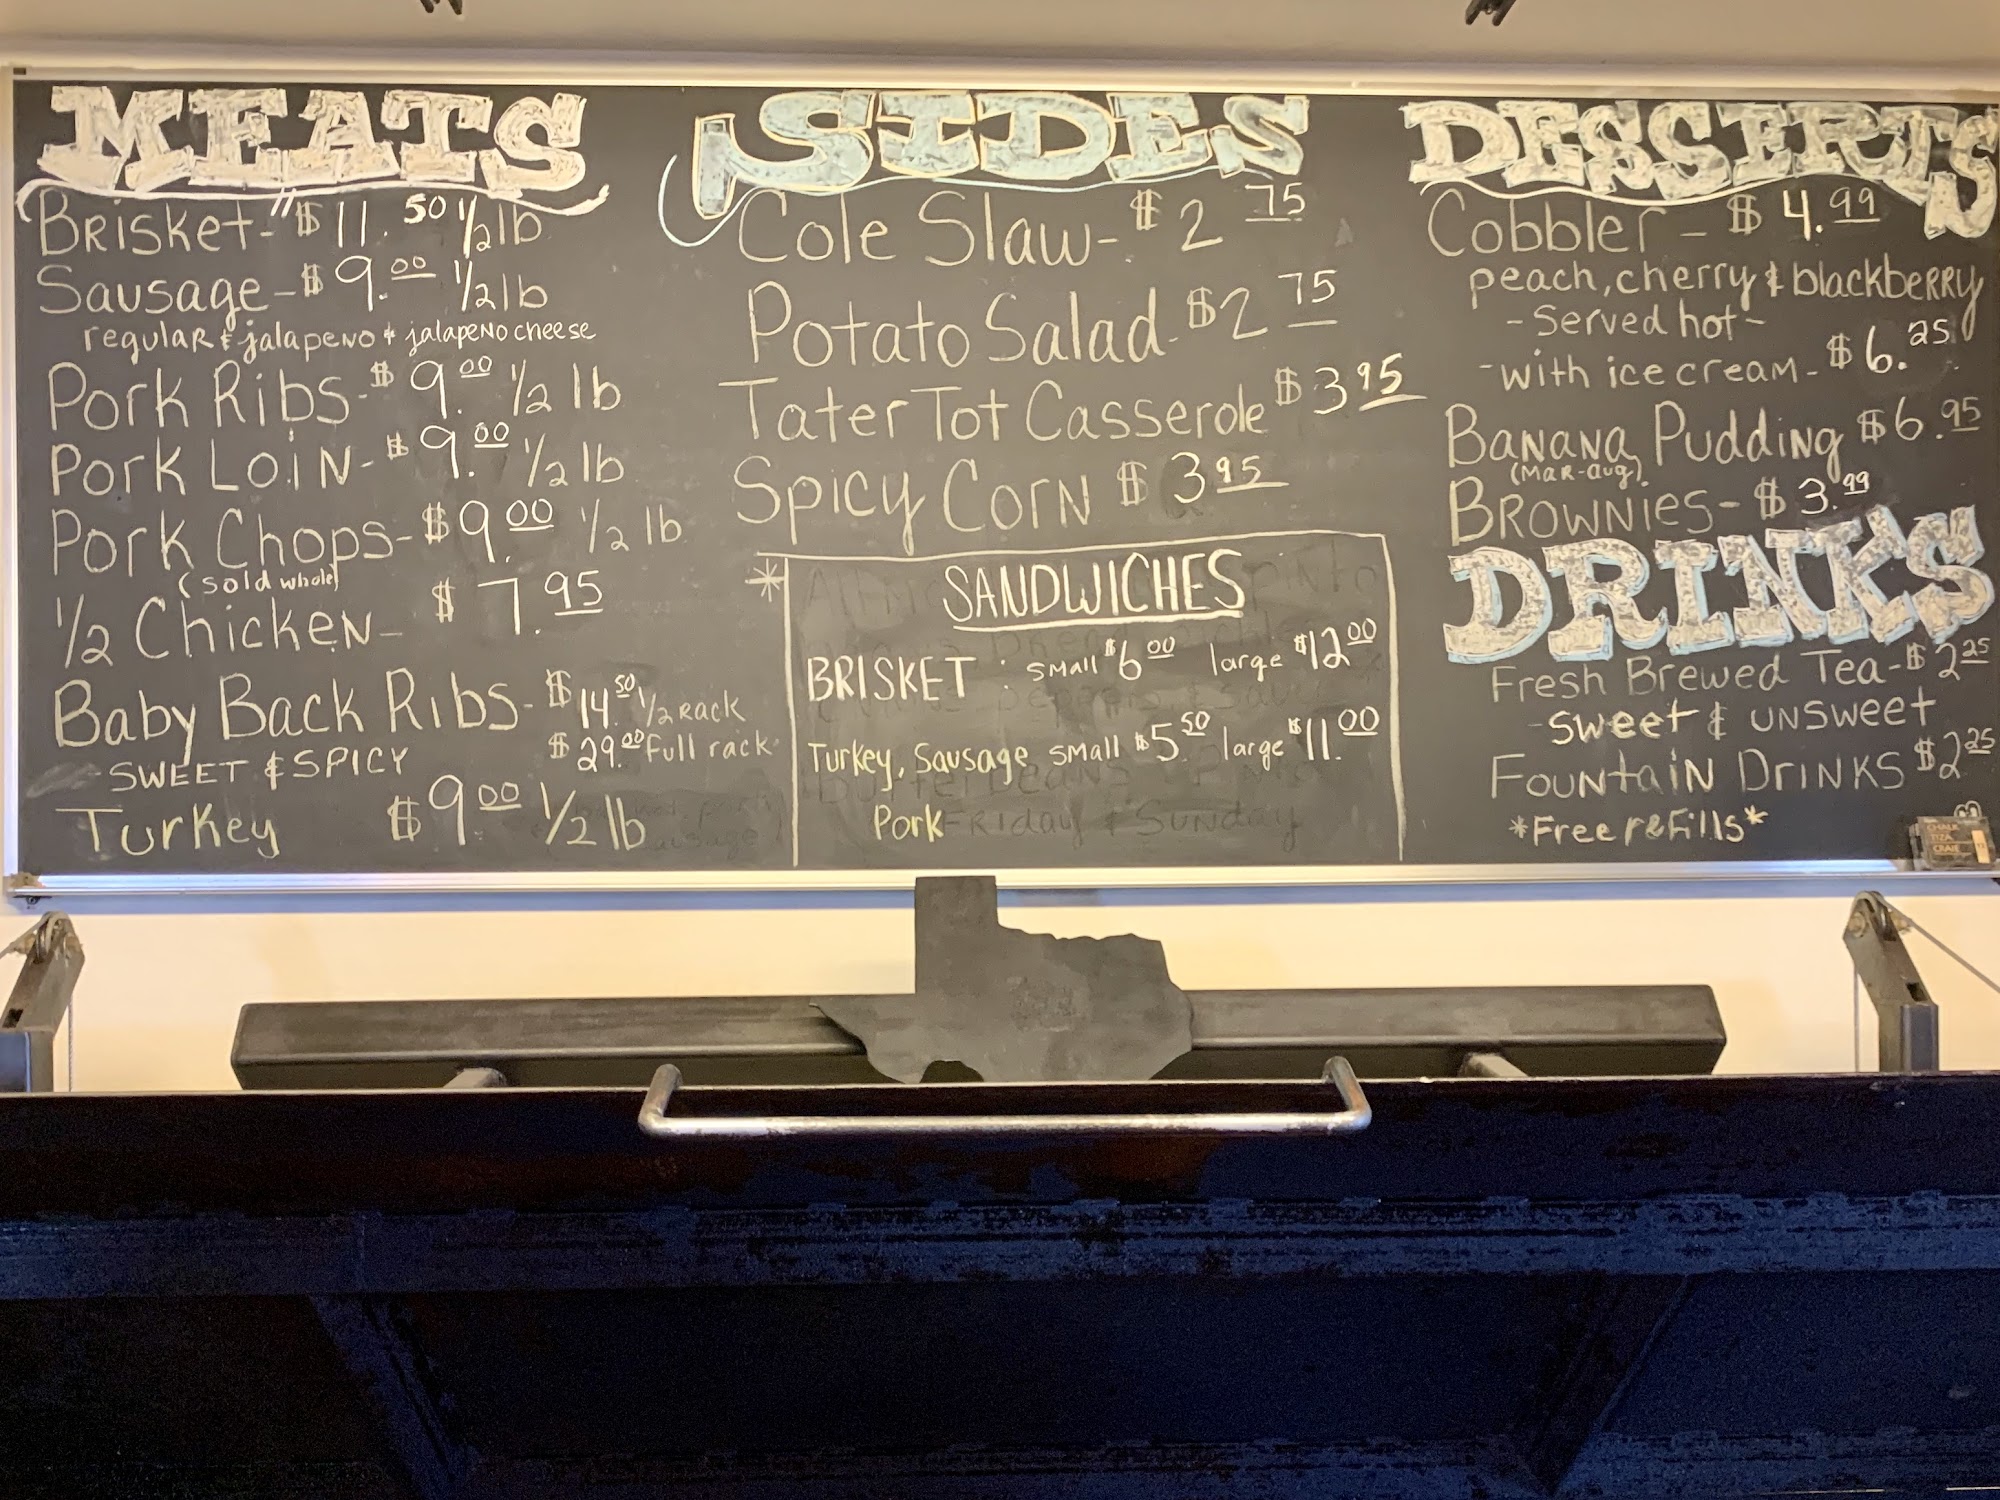 MEATS
Brisket - $11.50 1/2 lb
Sausage - $9.00 1/2 lb
regular & jalapeno & jalapeno cheese
Pork Ribs - $9.00 1/2 lb
Pork Loin - $9.00 1/2 lb
Pork Chops - $9.00 1/2 lb
(sold whole)
1/2 Chicken - $7.95
Baby Back Ribs - $14.50 1/2 rack
SWEET & SPICY $29.00 full rack
Turkey $9.00 1/2 lb
SIDES
Cole Slaw - $2 75
Potato Salad - $2 75
Tater Tot Casserole $3 95
Spicy Corn $3 95
* SANDWICHES
BRISKET : small $6 00 large $12 00
Turkey, Sausage small $5 50 large $11.00
Pork
Friday & Sunday
DESSERTS
Cobbler - $4.99
peach, cherry & blackberry
- Served hot -
- with ice cream - $6.25
Banana Pudding $6.95
(Mar-Aug)
Brownies - $3.99
DRINK'S
Fresh Brewed Tea - $2 25
- Sweet & unsweet
Fountain Drinks $2 25
*Free refills*
CHALK